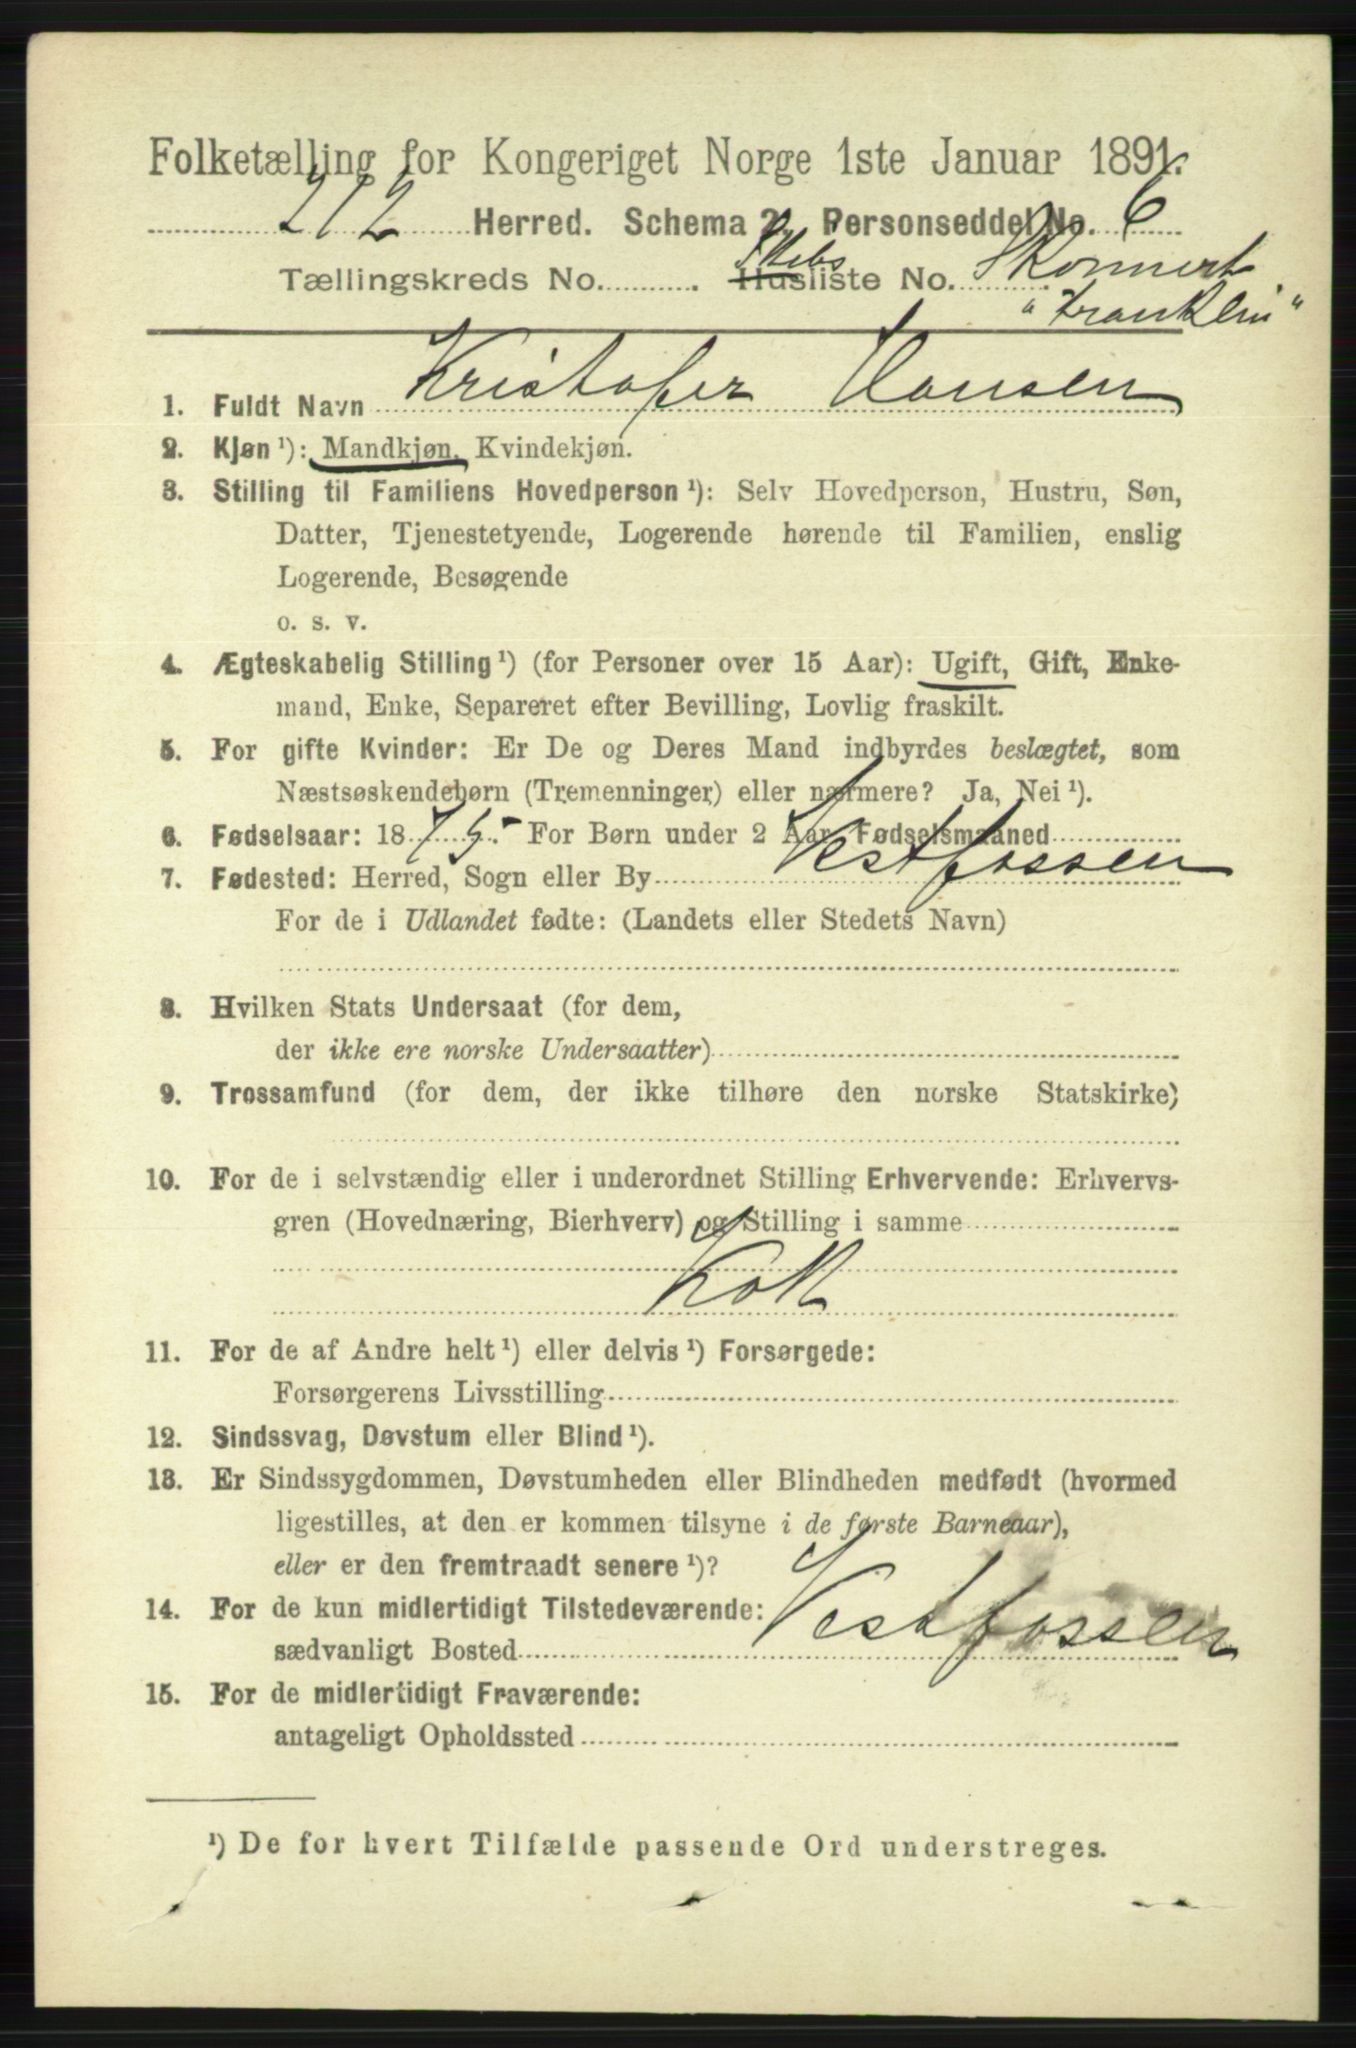 Folketælling for Kongeriget Norge 1ste Januar 1891.
212 Herred. Schema 2. Personseddel No. 6
Tællingskreds No. . Skibs Husliste No. Skonnert
"Franklin"
1. Fuldt Navn Kristofer Hansen
2. Kjøn ¹): Mandkjøn, Kvindekjøn.
3. Stilling til Familiens Hovedperson ¹): Selv Hovedperson, Hustru, Søn,
Datter, Tjenestetyende, Logerende hørende til Familien, enslig
Logerende, Besøgende
o. s. v.
4. Ægteskabelig Stilling ¹) (for Personer over 15 Aar): Ugift, Gift, Enke-
mand, Enke, Separeret efter Bevilling, Lovlig fraskilt.
5. For gifte Kvinder: Er De og Deres Mand indbyrdes beslægtet, som
Næstsøskendebørn (Tremenninger) eller nærmere? Ja, Nei ¹).
6. Fødselsaar: 1875. For Børn under 2 Aar, Fødselsmaaned
7. Fødested: Herred, Sogn eller By Vestfossen
For de i Udlandet fødte: (Landets eller Stedets Navn)
8. Hvilken Stats Undersaat (for dem,
der ikke ere norske Undersaatter)
9. Trossamfund (for dem, der ikke tilhøre den norske Statskirke)
10. For de i selvstændig eller i underordnet Stilling Erhvervende: Erhvervs-
gren (Hovednæring, Bierhverv) og Stilling i samme
Kok
11. For de af Andre helt ¹) eller delvis ¹) Forsørgede:
Forsørgerens Livsstilling
12. Sindssvag, Døvstum eller Blind ¹).
13. Er Sindssygdommen, Døvstumheden eller Blindheden medfødt (hvormed
ligestilles, at den er kommen tilsyne i de første Barneaar),
eller er den fremtraadt senere ¹)?
14. For de kun midlertidigt Tilstedeværende:
sædvanligt Bosted Vestfossen
15. For de midlertidigt Fraværende:
antageligt Opholdssted
¹) De for hvert Tilfælde passende Ord understreges.